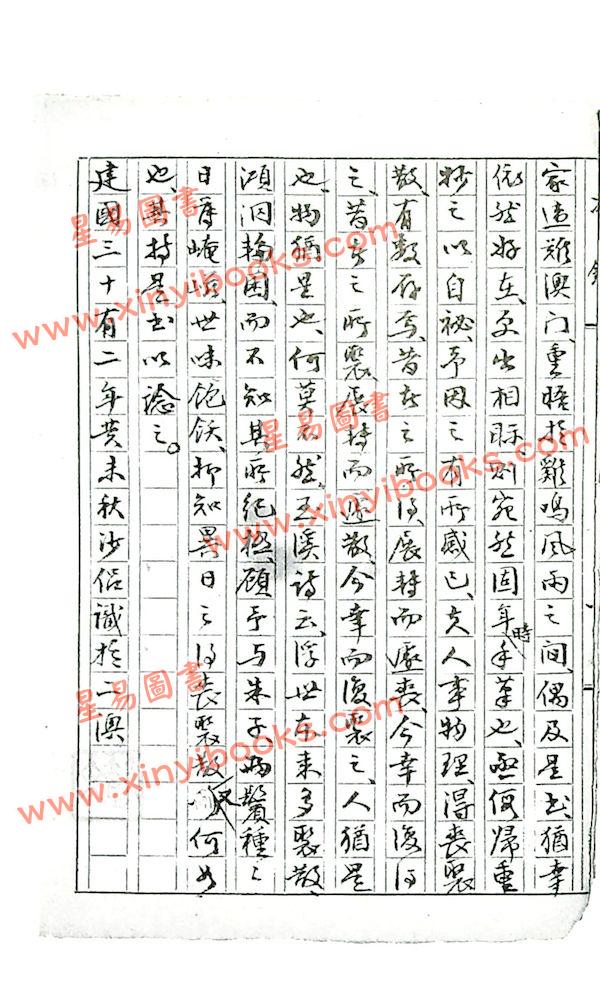 家遠難澳門、重晤於雞鳴風雨之間、偶及是書、猶幸
依然好在、更出相眎、則宛然固年時手草也、亟假歸重
抄之以自祕、予因之有所感已、夫人事物理、得喪聚
散、有數存焉、昔者之所得、展轉而遽喪、今幸而復得
之、昔者之所聚、展轉而遽散、今幸而復聚之、人猶是
也、物猶是也、何莫不然、玉溪詩云、浮世本來多聚散、
澒洞輪囷、而不知其所紀極、顧予与朱子、兩鬢種之
日薄崦嵫、世味飽飫、抑知異日之得喪聚散、又何如
也、其持是書以諗之。
建國三十有二年癸未秋沙侶識於二澳
星易圖書
www.xinyibooks.com
星易圖書
www.xinyibooks.com
星易圖書
www.xinyibooks.com